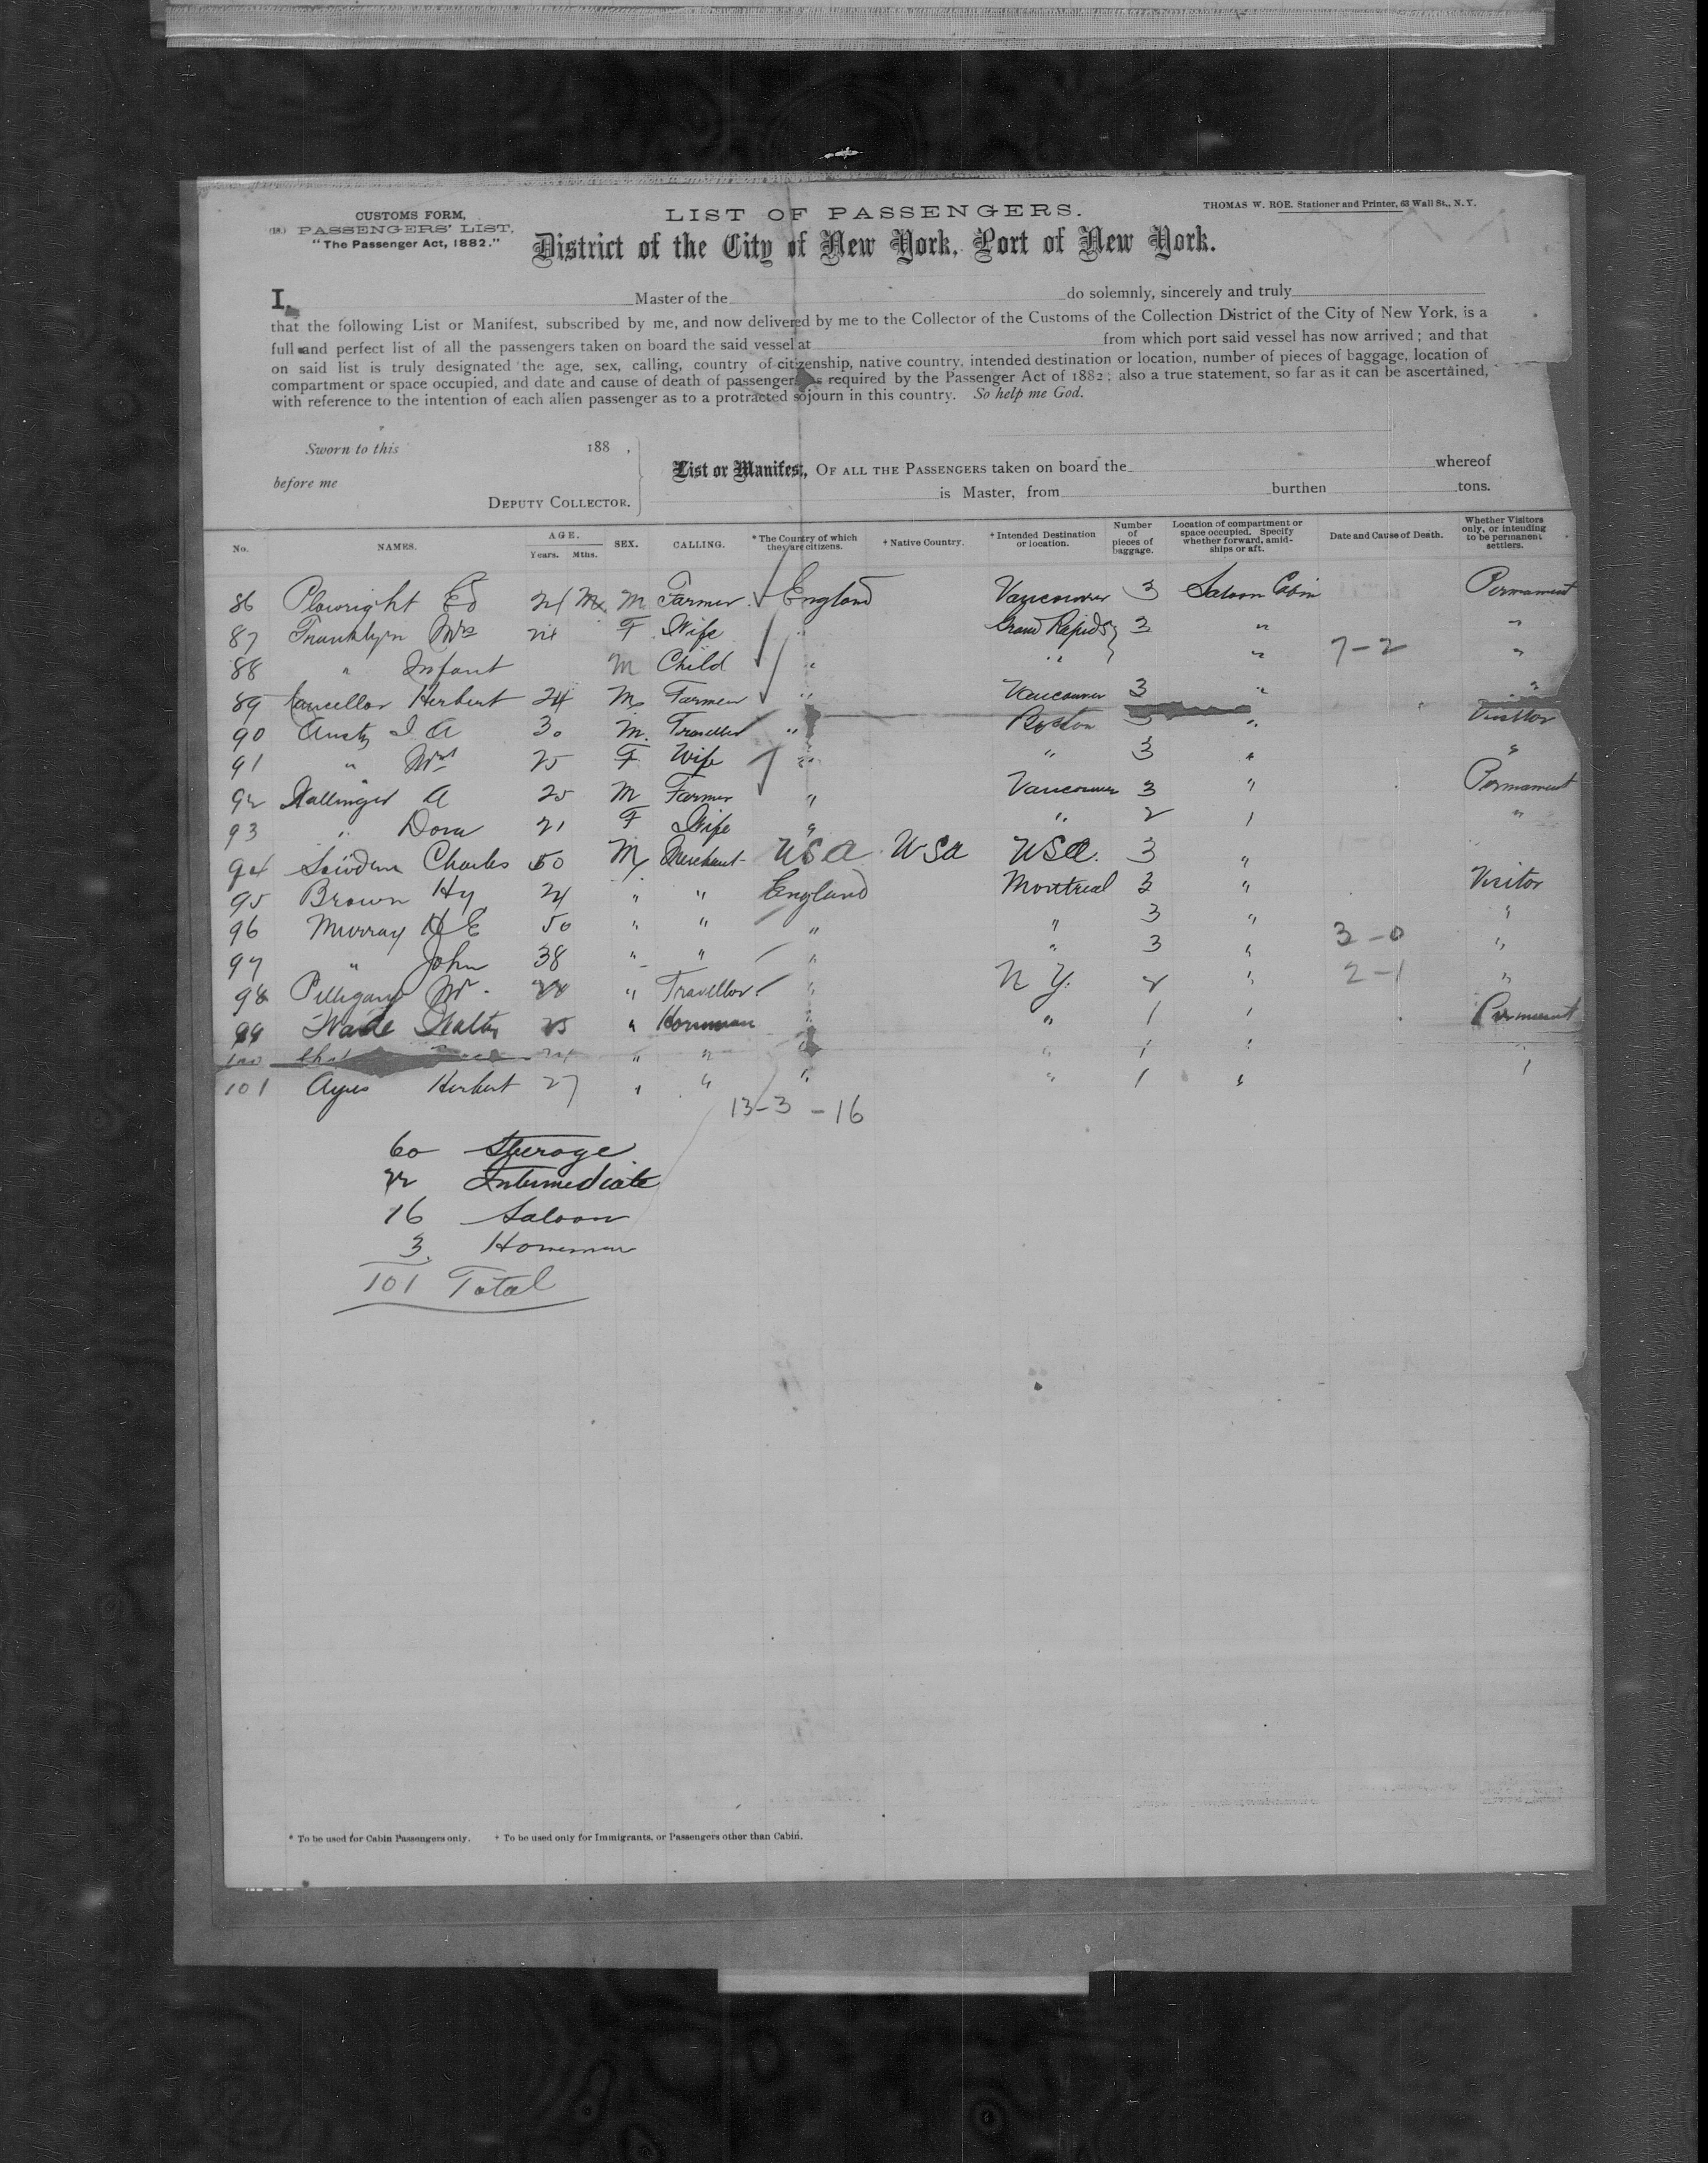 CUSTOMS FORM,
(18.) PASSENGERS' LIST.
"The Passenger Act, 1882."
LIST OF PASSENGERS.
THOMAS W. ROE, Stationer and Printer, 63 Wall St., N.Y.
District of the City of New York, Port of New York.
I, Master of the do solemnly, sincerely and truly
that the following List or Manifest, subscribed by me, and now delivered by me to the Collector of the Customs of the Collection District of the City of New York, is a
full and perfect list of all the passengers taken on board the said vessel at from which port said vessel has now arrived; and that
on said list is truly designated the age, sex, calling, country of citizenship, native country, intended destination or location, number of pieces of baggage, location of
compartment or space occupied, and date and cause of death of passengers as required by the Passenger Act of 1882; also a true statement, so far as it can be ascertained,
with reference to the intention of each alien passenger as to a protracted sojourn in this country. So help me God.
Sworn to this 188 ,
before me
DEPUTY COLLECTOR.
List or Manifest, OF ALL THE PASSENGERS taken on board the whereof
is Master, from burthen tons.
No. NAMES. AGE. Years. Mths. SEX. CALLING. * The Country of which they are citizens. † Native Country. † Intended Destination or location. Number of pieces of baggage. Location of compartment or space occupied. Specify whether forward, amidships or aft. Date and Cause of Death. Whether Visitors only, or intending to be permanent settlers.
86 Plowright Ed 24 M Farmer England Vancouver 3 Saloon Cabin Permament
87 Franklyn Mrs 24 F Wife " Grand Rapids 3 " "
88 " Infant M Child " " " 7-2 "
89 Cancellor Herbert 24 M Farmer " Vancouver 3 " "
90 I A 30 M. Traveller " Boston 3 " Visitor
91 " Mrs 25 F Wife " " 3 " "
92 A 25 M Farmer " Vancouver 3 " Permament
93 " Dora 21 F Wife " " 2 " "
94 Charles 50 M Merchant USA USA USA. 3 "
95 Brown Hy 24 " " England Montreal 3 " Visitor
96 Murray H E 50 " " " " 3 " "
97 " John 38 " " " " 3 " 3-0 "
98 Mr. 28 " Traveller " N Y. 2 " 2-1 "
99 Wade Walter 25 " Horseman " " 1 " Permament
100 24 " " " " 1 " "
101 Ayres Herbert 27 " " " " 1 " "
13-3 - 16
60 Steerage
22 Intermediate
16 Saloon
3. Horseman
101 Total
* To be used for Cabin Passengers only. † To be used only for Immigrants, or Passengers other than Cabin.